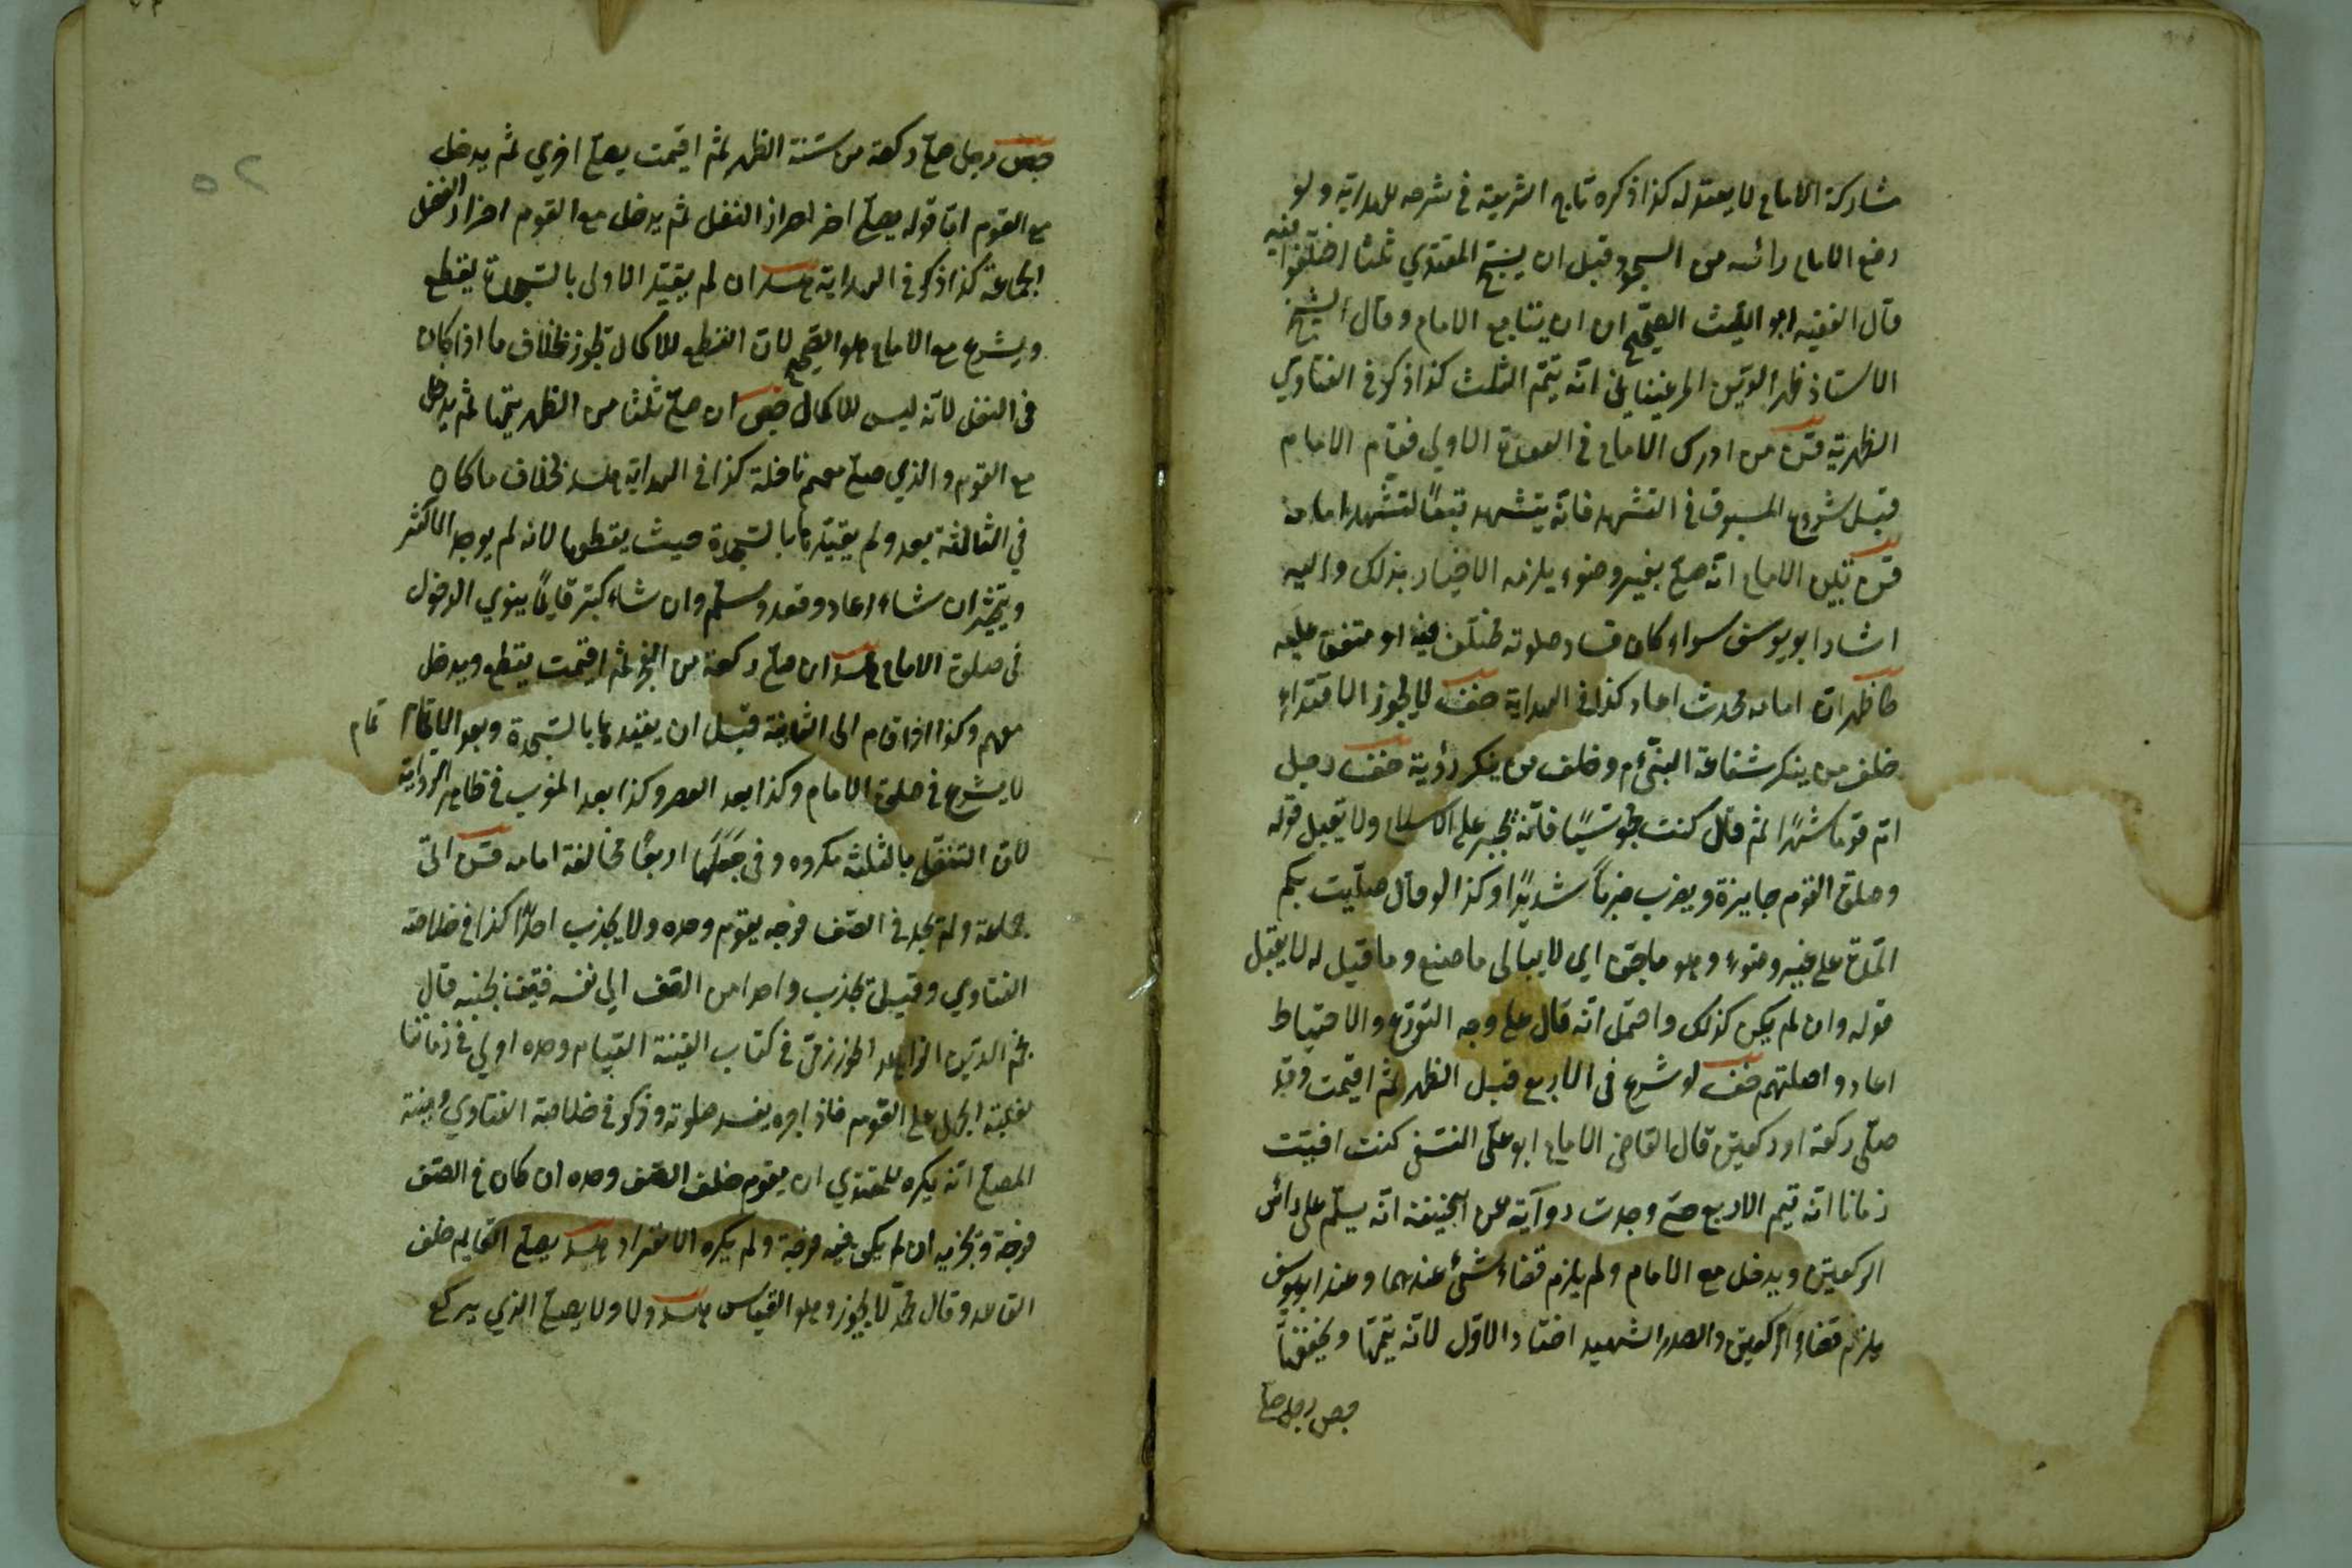 مشاركة الامام لا يعتد له كذا ذكره تاج الشريعة في شرحه للهداية ولو
رفع الامام رأسه من السجود قبل ان يسبح المقتدي ثلثا اختلفوا فيه
قال الفقيه ابو الليث الصحيح ان يتابع الامام وقال الشيخ
الاستاذ ظهير الدين المرغيناني انه يتم الثلث كذا ذكر في الفتاوي
الظهيرية من ادرك الامام في القعدة الاولي فقام الامام
قبل شروع المسبوق في التشهد فانه يتشهد تبعًا لتشهد امامه
تبين الامام انه صلي بغير وضوء يلزمه الاخبار بذلك واليه
اشار ابو يوسف سواء كان فساد صلوته مختلف فيه او متفق عليه
ظهر ان امامه محدث اعاد كذا في الهداية لا يجوز الاقتداء
خلف من ينكر شفاعة النبي م وخلف من ينكر رؤية رجل
ام قوما شهرًا ثم قال كنت مجوسيًا فانه يجبر علي الاسلام ولا يقبل قوله
وصلوة القوم جايزة ويضرب ضربًا شديدًا وكذا لو قال صليت بكم
المدة علي غير وضوء وهو ماجن اي لا يبالي ما صنع وما قيل له لا يقبل
قوله وان لم يكن كذلك واحتمل انه قال علي وجه التورع والاحتياط
اعادوا صلتهم لو شرع في الاربع قبل الظهر ثم اقيمت وقد
صلي ركعة او ركعتين قال القاضي الامام ابو علي النسفي كنت افتيت
زمانا انه يتم الاربع حتي وجدت رواية عن ابيحنيفة انه يسلم علي رأس
الركعتين ويدخل مع الامام ولم يلزم قضاء شئ عندهما وعند ابويوسف
يلزم قضاء الركعتين والصدر الشهيد اختار الاول لانه يتمها ويخففها
رجل صلي
رجل صلي ركعة من سنة الظهر ثم اقيمت يصلي اخري ثم يدخل
مع القوم اما قوله يصلي اخر احراز النفل ثم يدخل مع القوم احراز الفضل
الجماعة كذا ذكر في الهداية ان لم يقيد الاولي بالسجدة يقطع
ويشرع مع الامام هو الصحيح لان القطع للاكمال بخلاف ما اذا كان
في النفل لانه ليس للاكمال ان صلي ثلثا من الظهر يتمها ثم يدخل
مع القوم والذي صلي معهم نافلة كذا في الهداية بخلاف ما كان
في الثالثة بعد ولم يقيدها بالسجدة حيث يقطعها لانه لم يوجد الاكثر
ويتخير ان شاء اعاد وقعد وسلم وان شاء كبر قايمًا ينوي الدخول
في صلوة الامام ان صلي ركعة من الفجر ثم اقيمت يقطع ويدخل
معهم وكذا اذا قام الي الثانية قبل ان يقيدها بالسجدة وبعد الاتمام تمام
لا يشرع في صلوة الامام وكذا بعد العصر وكذا بعد المغرب في ظاهر الرواية
لان التنفل بالثلثة مكروه وفي جعلها اربعًا مخالفة امامه اتي
جماعة ولم يجد في الصف فرجه يقوم وحده ولا يجذب احدًا كذا في خلاصة
الفتاوي وقيل يجذب واحدا من الصف الي نفسه فيقف بجنبه قال
نجم الدين الزاهد في كتاب القنية القيام وحده اولي في زماننا
لغلبة الجهل علي القوم فاذا جره يفسد صلوته وذكر في خلاصة الفتاوي ومنية
المصلي انه يكره للمقتدي ان يقوم خلف الصف وحده ان كان في الصف
فرجة وتجزيه ان لم يكن فيه فرجة ولم يكره الانفراد يصلي القايم خلف
القاعد وقال محمد لا يجوز وهو القياس ولا يصلي الذي يركع